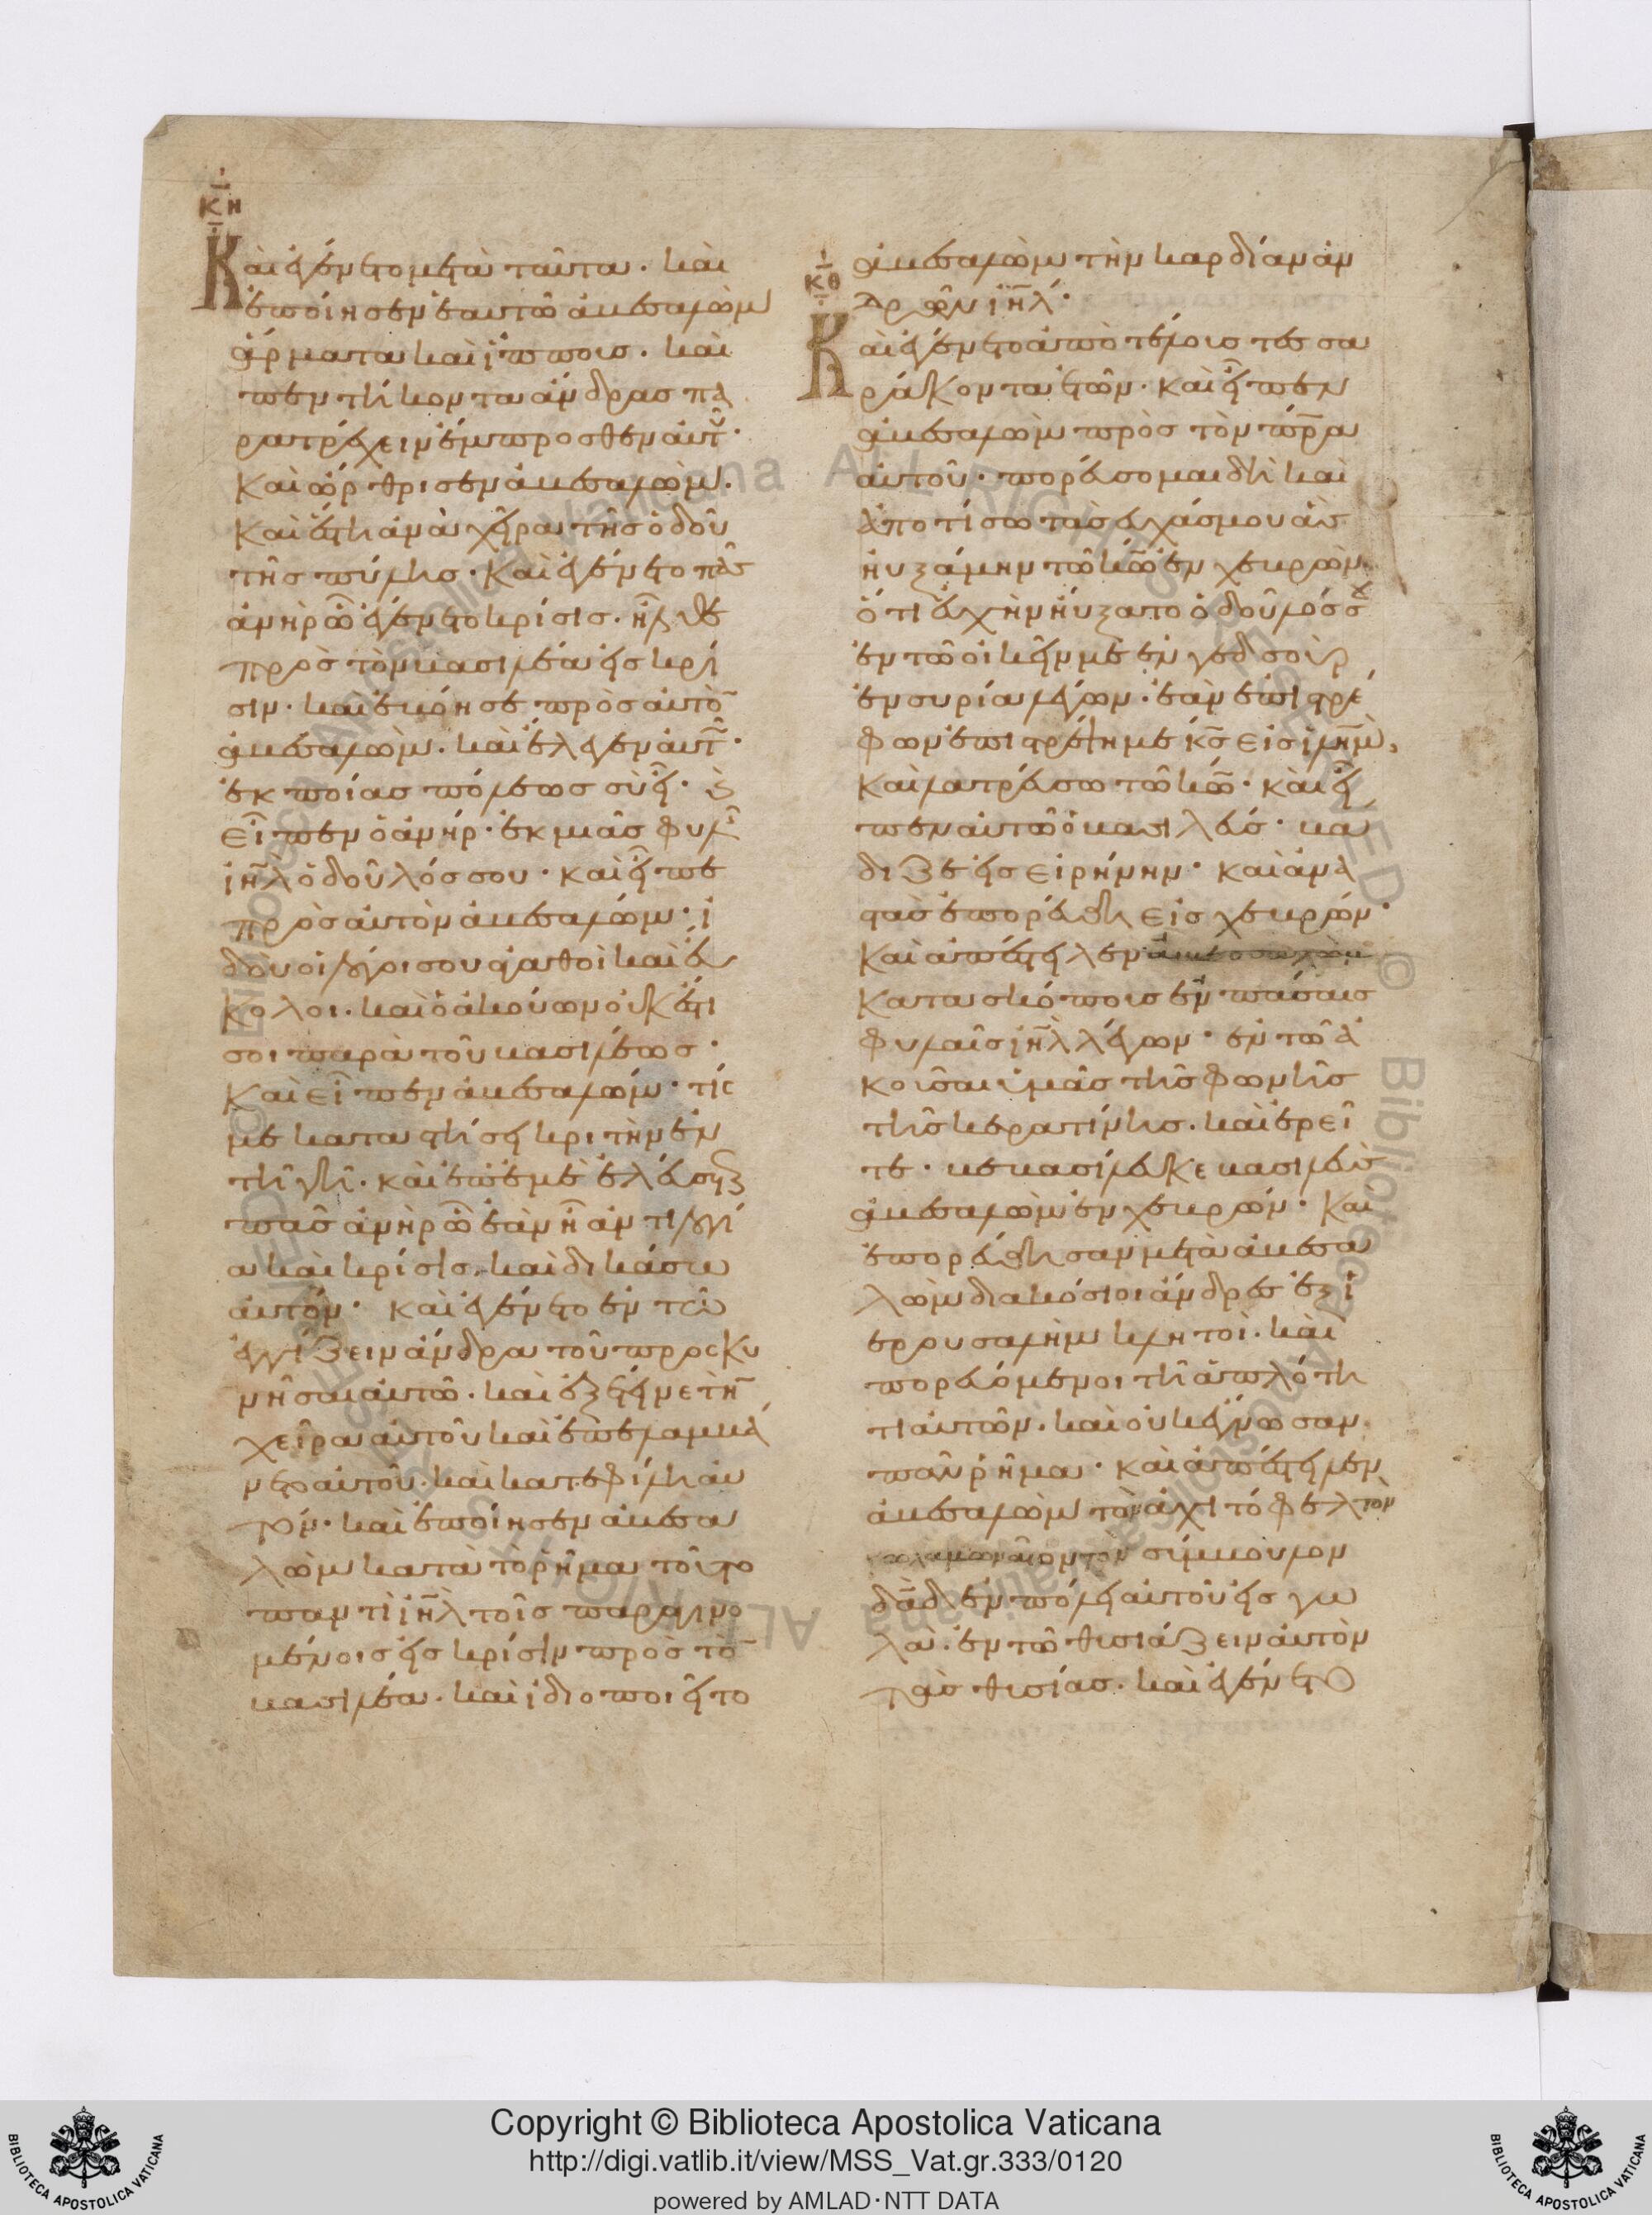 κη
Καὶ ἐγένετο μετὰ ταῦτα. καὶ
ἐποίησεν ἑαυτῶ ἀβεσαλὼμ
ἅρματα καὶ ἵππους. καὶ
πεντήκοντα ἄνδρας πα
ρατρέχειν ἔμπροσθεν αὐτ̑.
Καὶ ὤρθρισεν ἀβεσαλὼμ.
Καὶ ἔστη ἀνὰ χεῖρα τῆς ὁδοῦ
τῆς πύλης. Καὶ ἐγένετο πᾶς
ἀνὴρ ὧ ἐγένετο κρίσις. ἦλθε
πρὸς τὸν βασιλέα εἰς κρί
σιν. καὶ ἐβόησε πρὸς αὐτὸ̄
ἀβεσαλὼμ. καὶ ἔλεγεν αὐτ̑.
ἐκ ποίας πόλεως σὺ εἶ. ϗ̀
εἶπεν ὁ ἀνήρ. ἐκ μιᾶς φυλ̑
ιη̄λ ὁ δοῦλός σου. καὶ εἶπε
πρὸς αὐτὸν ἀβεσαλώμ. ἰ
δοὺ οἱ λόγοι σου ἀγαθοὶ καὶ εὔ
κολοι. καὶ ὁ ἀκούων οὐκ ἔστι
σοι παρὰ τοῦ βασιλέως.
Καὶ εἶπεν ἀβεσαλώμ. τίς
με καταστήσει κριτὴν ἐν
τῆ γῆ. καὶ ἐπ' ἐμὲ ἐλεύσετ
πᾶς ἀνὴρ ὧ ἐὰν ἦ ἀντιλογί
α καὶ κρίσις. καὶ δικάσω
αὐτόν. καὶ ἐγένετο ἐν τῶ
ἐγγίζειν ἄνδρα τοῦ προσκυ
νῆσαι αὐτῶ. καὶ ἐξέτεινε τὴ̄
χεῖρα αὐτοῦ καὶ ἐπελαμβά
νετο αὐτοῦ. καὶ κατεφίλει αὐ
τόν. καὶ ἐποίησεν ἀβεσα
λὼμ κατὰ τὸ ῥῆμα τοῦτο
παντὶ ιη̄λ τοῖς παραγινο
μένοις εἰς κρίσιν πρὸς τὸ̄
βασιλέα. καὶ ἰδιοποιεῖτο
ἀβεσαλὼμ τὴν καρδίαν ἀν
δρῶν ιη̄λ.
κθ
Καὶ ἐγένετο ἀπὸ τέλους τεσσα
ράκοντα ἐτῶν. καὶ εἶπεν
ἀβεσαλὼμ πρὸς τὸν πρ̄α
αὐτοῦ. πορεύσομαι δὴ καὶ
ἀποτίσω τὰς εὐχάς μου ἃς
ηὐξάμην τῶ κω̄ ἐν χεβρών.
ὅτι εὐχὴν ηὔξατο ὁ δοῦλός σȣ
ἐν τῶ οἰκεῖν με ἐν γεδσοὺρ
ἐν συρία λέγων. ἐὰν ἐπιστρέ
φων ἐπιστρέψη με κς̄ εἰς ιλη̄μ,
καὶ λατρεύσω τῶ κω̄. καὶ εἶ
πεν αὐτῶ ὁ βασιλεύς. βα
διζε εἰς εἰρήνην. καὶ ἀνα
στὰς ἐπορεύθη εἰς χεβρών.
Καὶ ἀπέστειλεν ἀβεσσαλὼμ
κατασκόπους ἐν πάσαις
φυλαῖς ιη̄λ λέγων. ἐν τῶ ἀ
κοῦσαι ὑμᾶς τῆς φωνῆς
τῆς κερατίνης. καὶ ἐρεῖ
τε. βεβασίλευκε βασιλεὺς
ἀβεσαλὼμ ἐν χεβρών. Καὶ
ἐπορεύθησαν μετὰ ἀβεσα
λὼμ διακόσιοι ἄνδρες ἐξ ἱ
ερουσαλὴμ κλητοὶ. καὶ
πορευόμενοι τῆ ἁπλότη
τι αὐτῶν. καὶ οὐκ ἔγνωσαν
πᾶν ῥῆμα. καὶ ἀπέστειλεν
ἀβεσαλὼμ τὸν ἀχιτόφελ τὸν
σύμβουλον
δᾱδ ἐν πόλει αὐτοῦ εἰς γω
λὰ. ἐν τῶ θυσιάζειν αὐτὸν
τὰς θυσίας. καὶ ἐγένετο
Copyright © Biblioteca Apostolica Vaticana
http://digi.vatlib.it/view/MSS_Vat.gr.333/0120
powered by AMLAD·NTT DATA